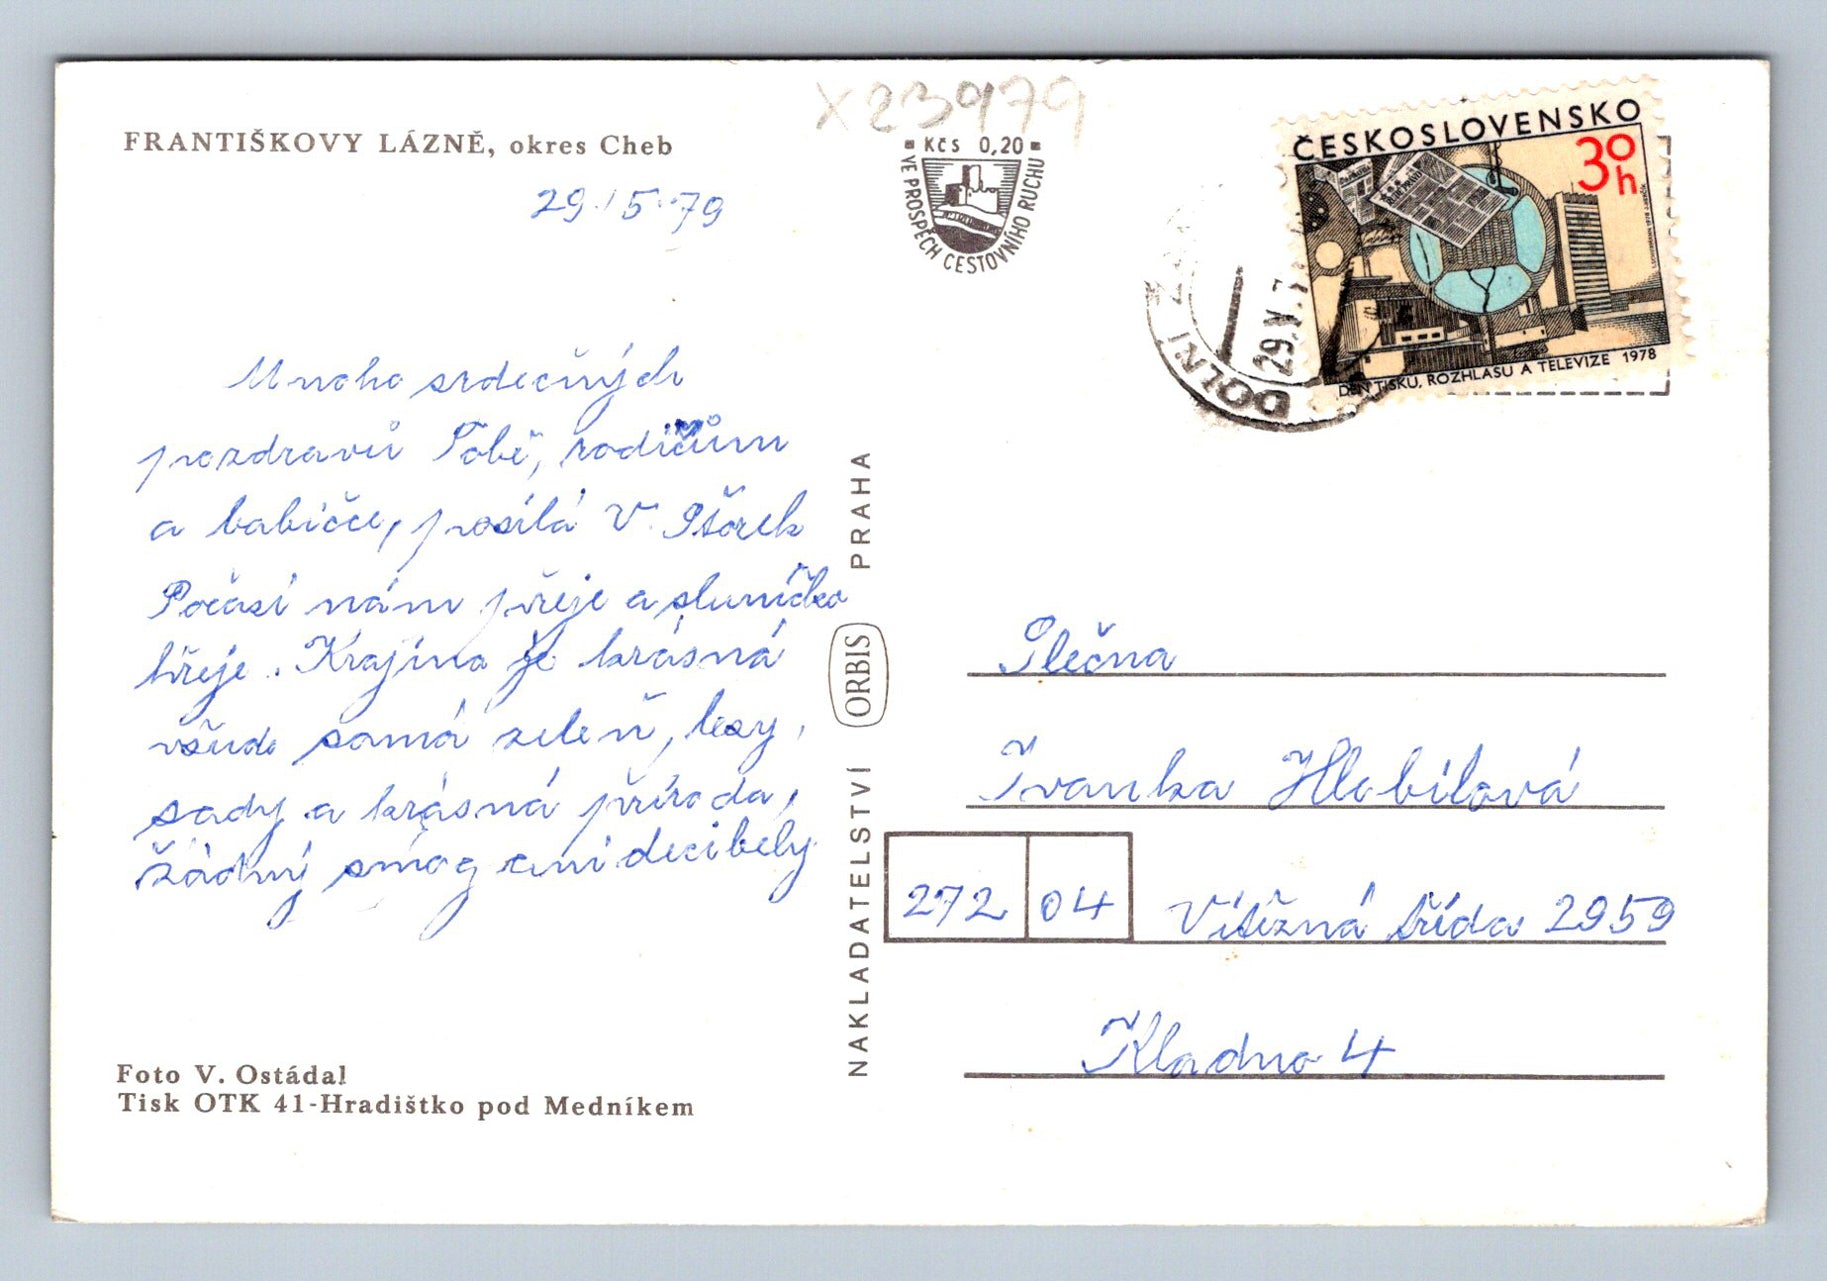 X23979
FRANTIŠKOVY LÁZNĚ, okres Cheb
29.5.79
Kčs 0,20
VE PROSPĚCH CESTOVNÍHO RUCHU
ČESKOSLOVENSKO
30h
DEN TISKU, ROZHLASU A TELEVIZE 1978
DOLNÍ
29.V.7
Mnoho srdečných
pozdravů Tobě, rodičům
a babičce, posílá V.
Počasí nám přeje a sluníčko
hřeje. Krajina je krásná
všude samá zeleň, lesy,
sady a krásná příroda,
žádný smog ani decibely
Foto V. Ostádal
Tisk OTK 41-Hradištko pod Medníkem
NAKLADATELSTVÍ ORBIS PRAHA
Slečna
Ivanka Hlobilová
272 04 Vítězná třída 2959
Kladno 4